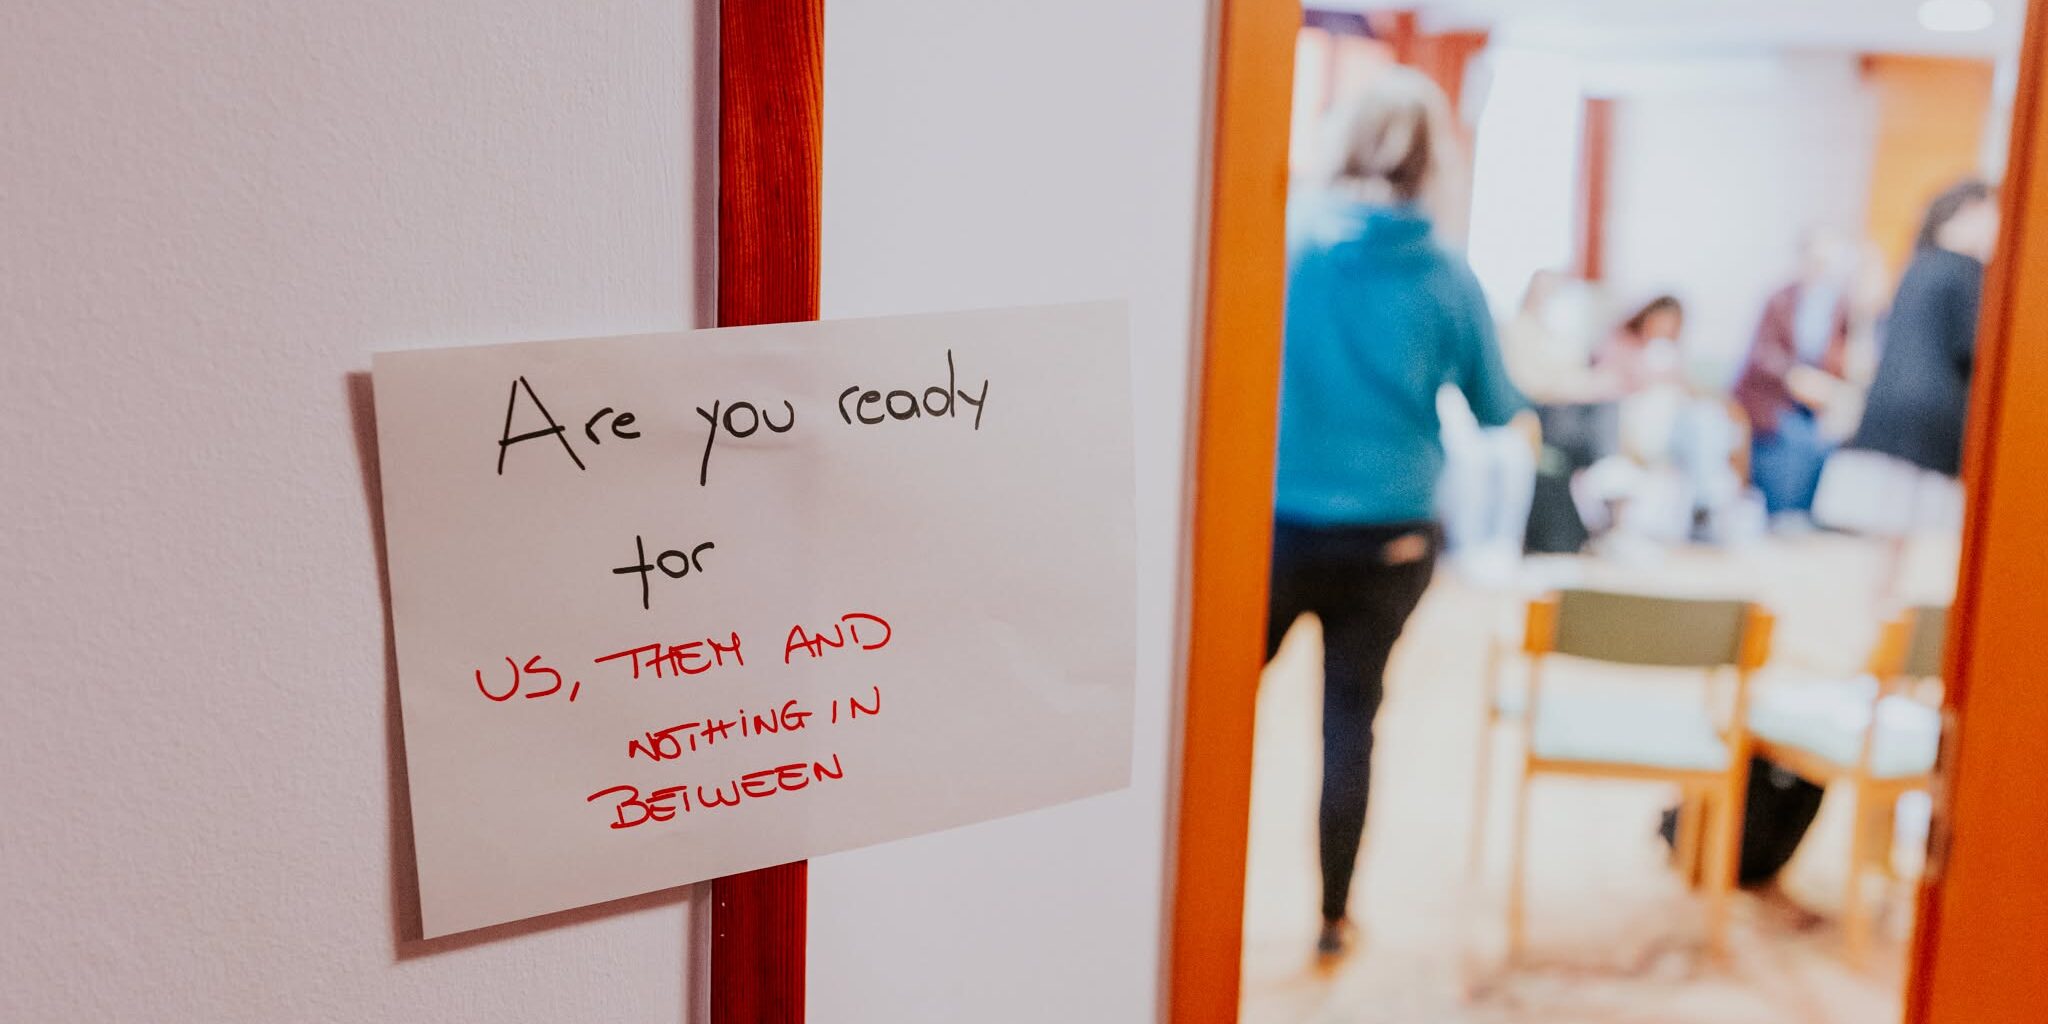 Are you ready
for
US, THEM AND
NOTHING IN
BETWEEN